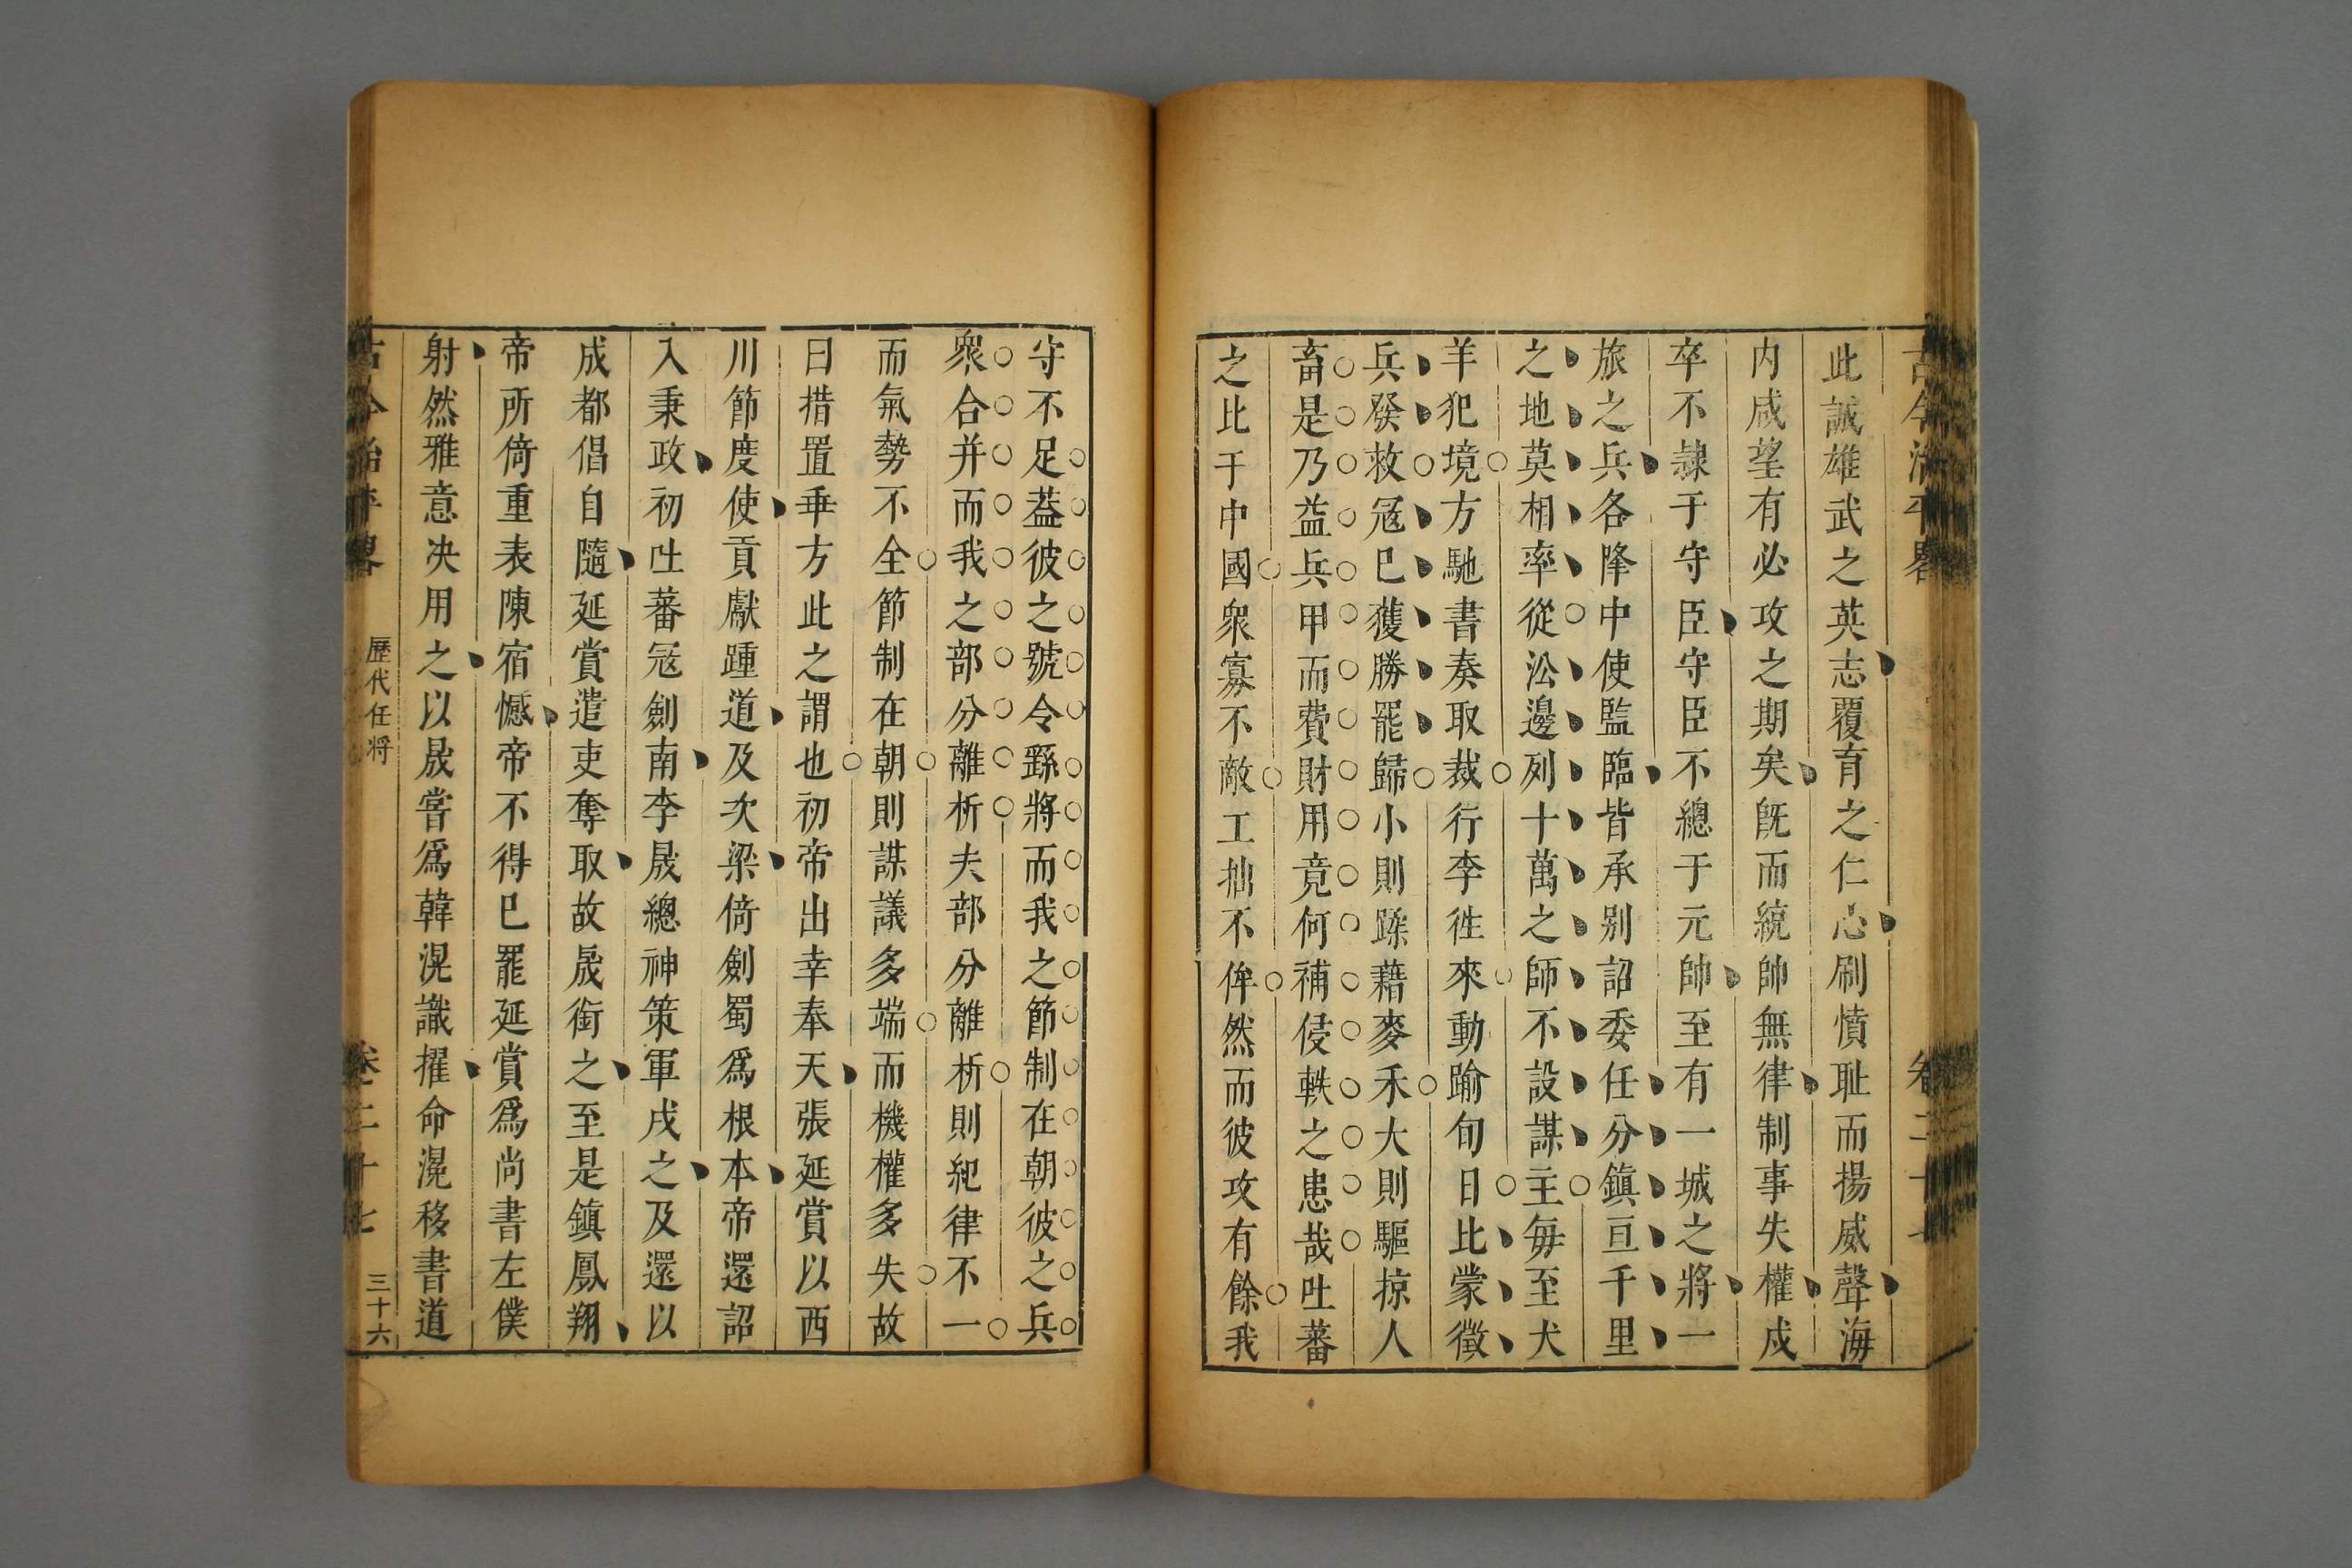 古今治平畧
卷二十七
此誠雄武之英志覆育之仁心刷憤耻而揚威聲海
内咸望有必攻之期矣旣而統帥無律制事失權戍
卒不隷于守臣守臣不總于元帥至有一城之將一
旅之兵各降中使監臨皆承别詔委任分鎮亘千里
之地莫相率從㳂邊列十萬之師不設謀主每至犬
羊犯境方馳書奏取裁行李徃來動踰旬日比蒙徵
兵發救寇已獲勝罷歸小則蹂藉麥禾大則驅掠人
畜是乃益兵甲而費財用竟何補侵軼之患哉吐蕃
之比于中國衆寡不敵工拙不侔然而彼攻有餘我
守不足葢彼之號令繇將而我之節制在朝彼之兵
衆合并而我之部分離析夫部分離析則紀律不一
而氣勢不全節制在朝則謀議多端而機權多失故
曰措置乖方此之謂也初帝出幸奉天張延賞以西
川節度使貢獻踵道及次梁倚劍蜀爲根本帝還詔
入秉政初吐蕃寇劍南李晟總神策軍戍之及還以
成都倡自隨延賞遣吏奪取故晟銜之至是鎮鳳翔
帝所倚重表陳宿憾帝不得已罷延賞爲尚書左僕
射然雅意决用之以晟嘗爲韓滉識擢命滉移書道
古今治平畧
歷代任將
卷二十七
三十六